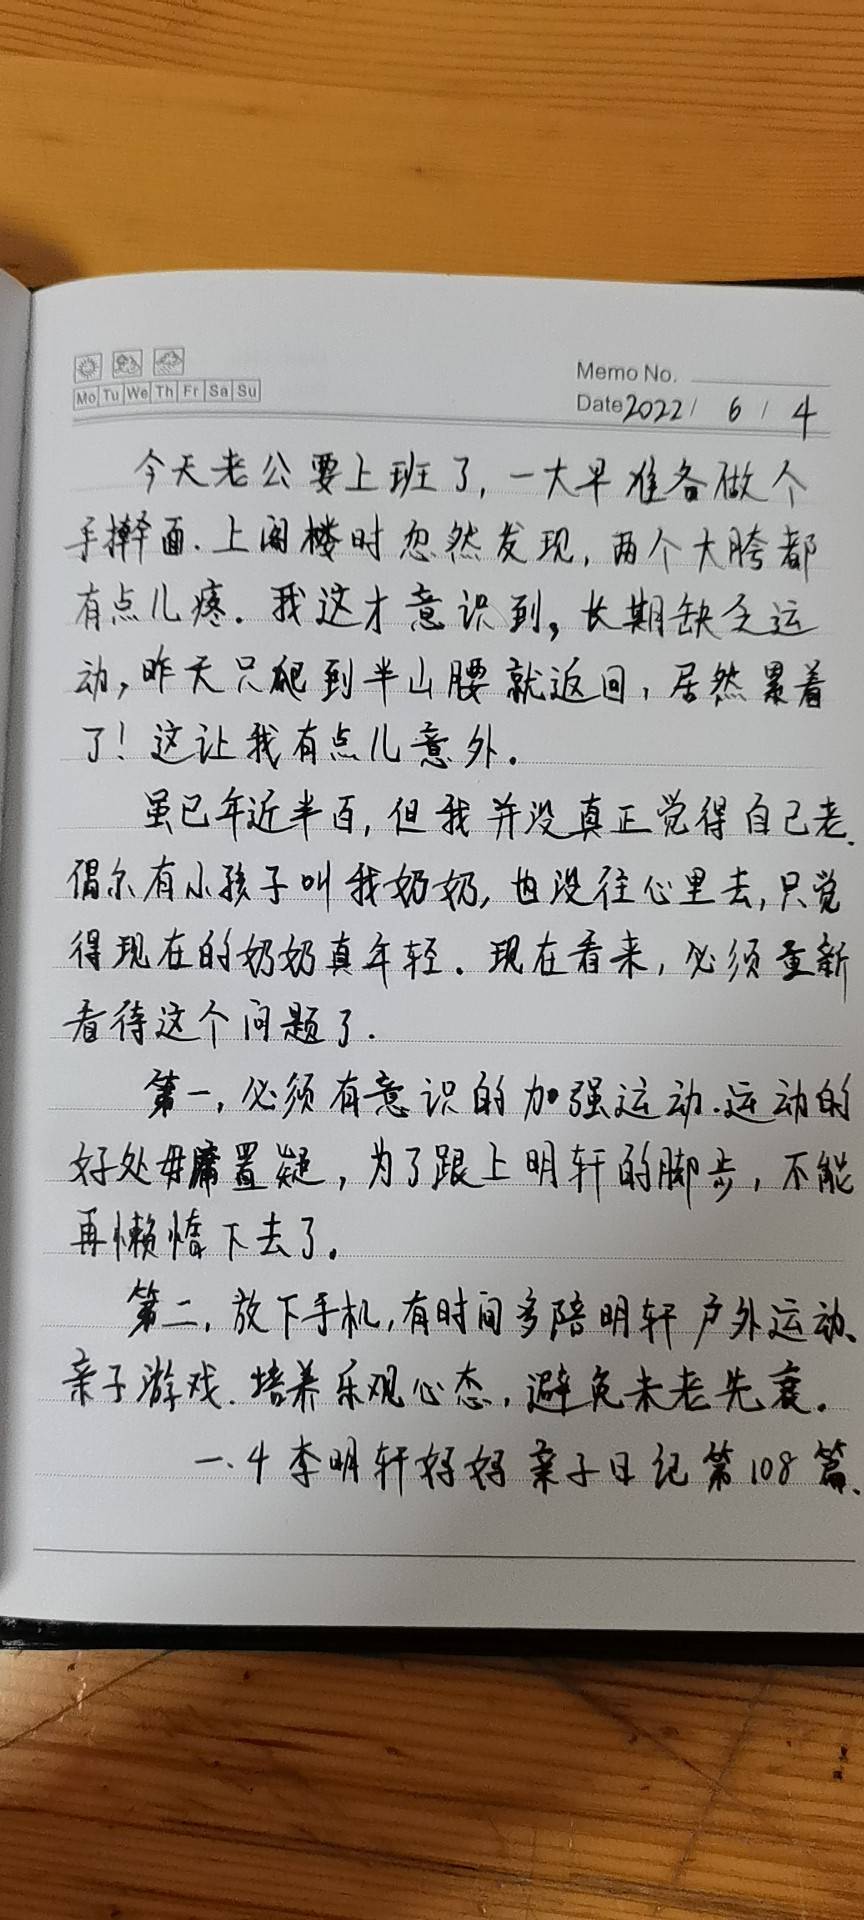 Mo Tu We Th Fr Sa Su
Memo No.
Date 2022 / 6 / 4
今天老公要上班了,一大早准备做个
手擀面.上阁楼时忽然发现,两个大胯都
有点儿疼。我这才意识到,长期缺乏运
动,昨天只爬到半山腰就返回,居然累着
了!这让我有点儿意外。
虽已年近半百,但我并没真正觉得自己老.
偶尔有小孩子叫我奶奶,也没往心里去,只觉
得现在的奶奶真年轻。现在看来,必须重新
看待这个问题了.
第一,必须有意识的加强运动.运动的
好处毋庸置疑,为了跟上明轩的脚步,不能
再懒惰下去了。
第二,放下手机,有时间多陪明轩户外运动、
亲子游戏.培养乐观心态,避免未老先衰。
一.4李明轩妈妈亲子日记第108篇.